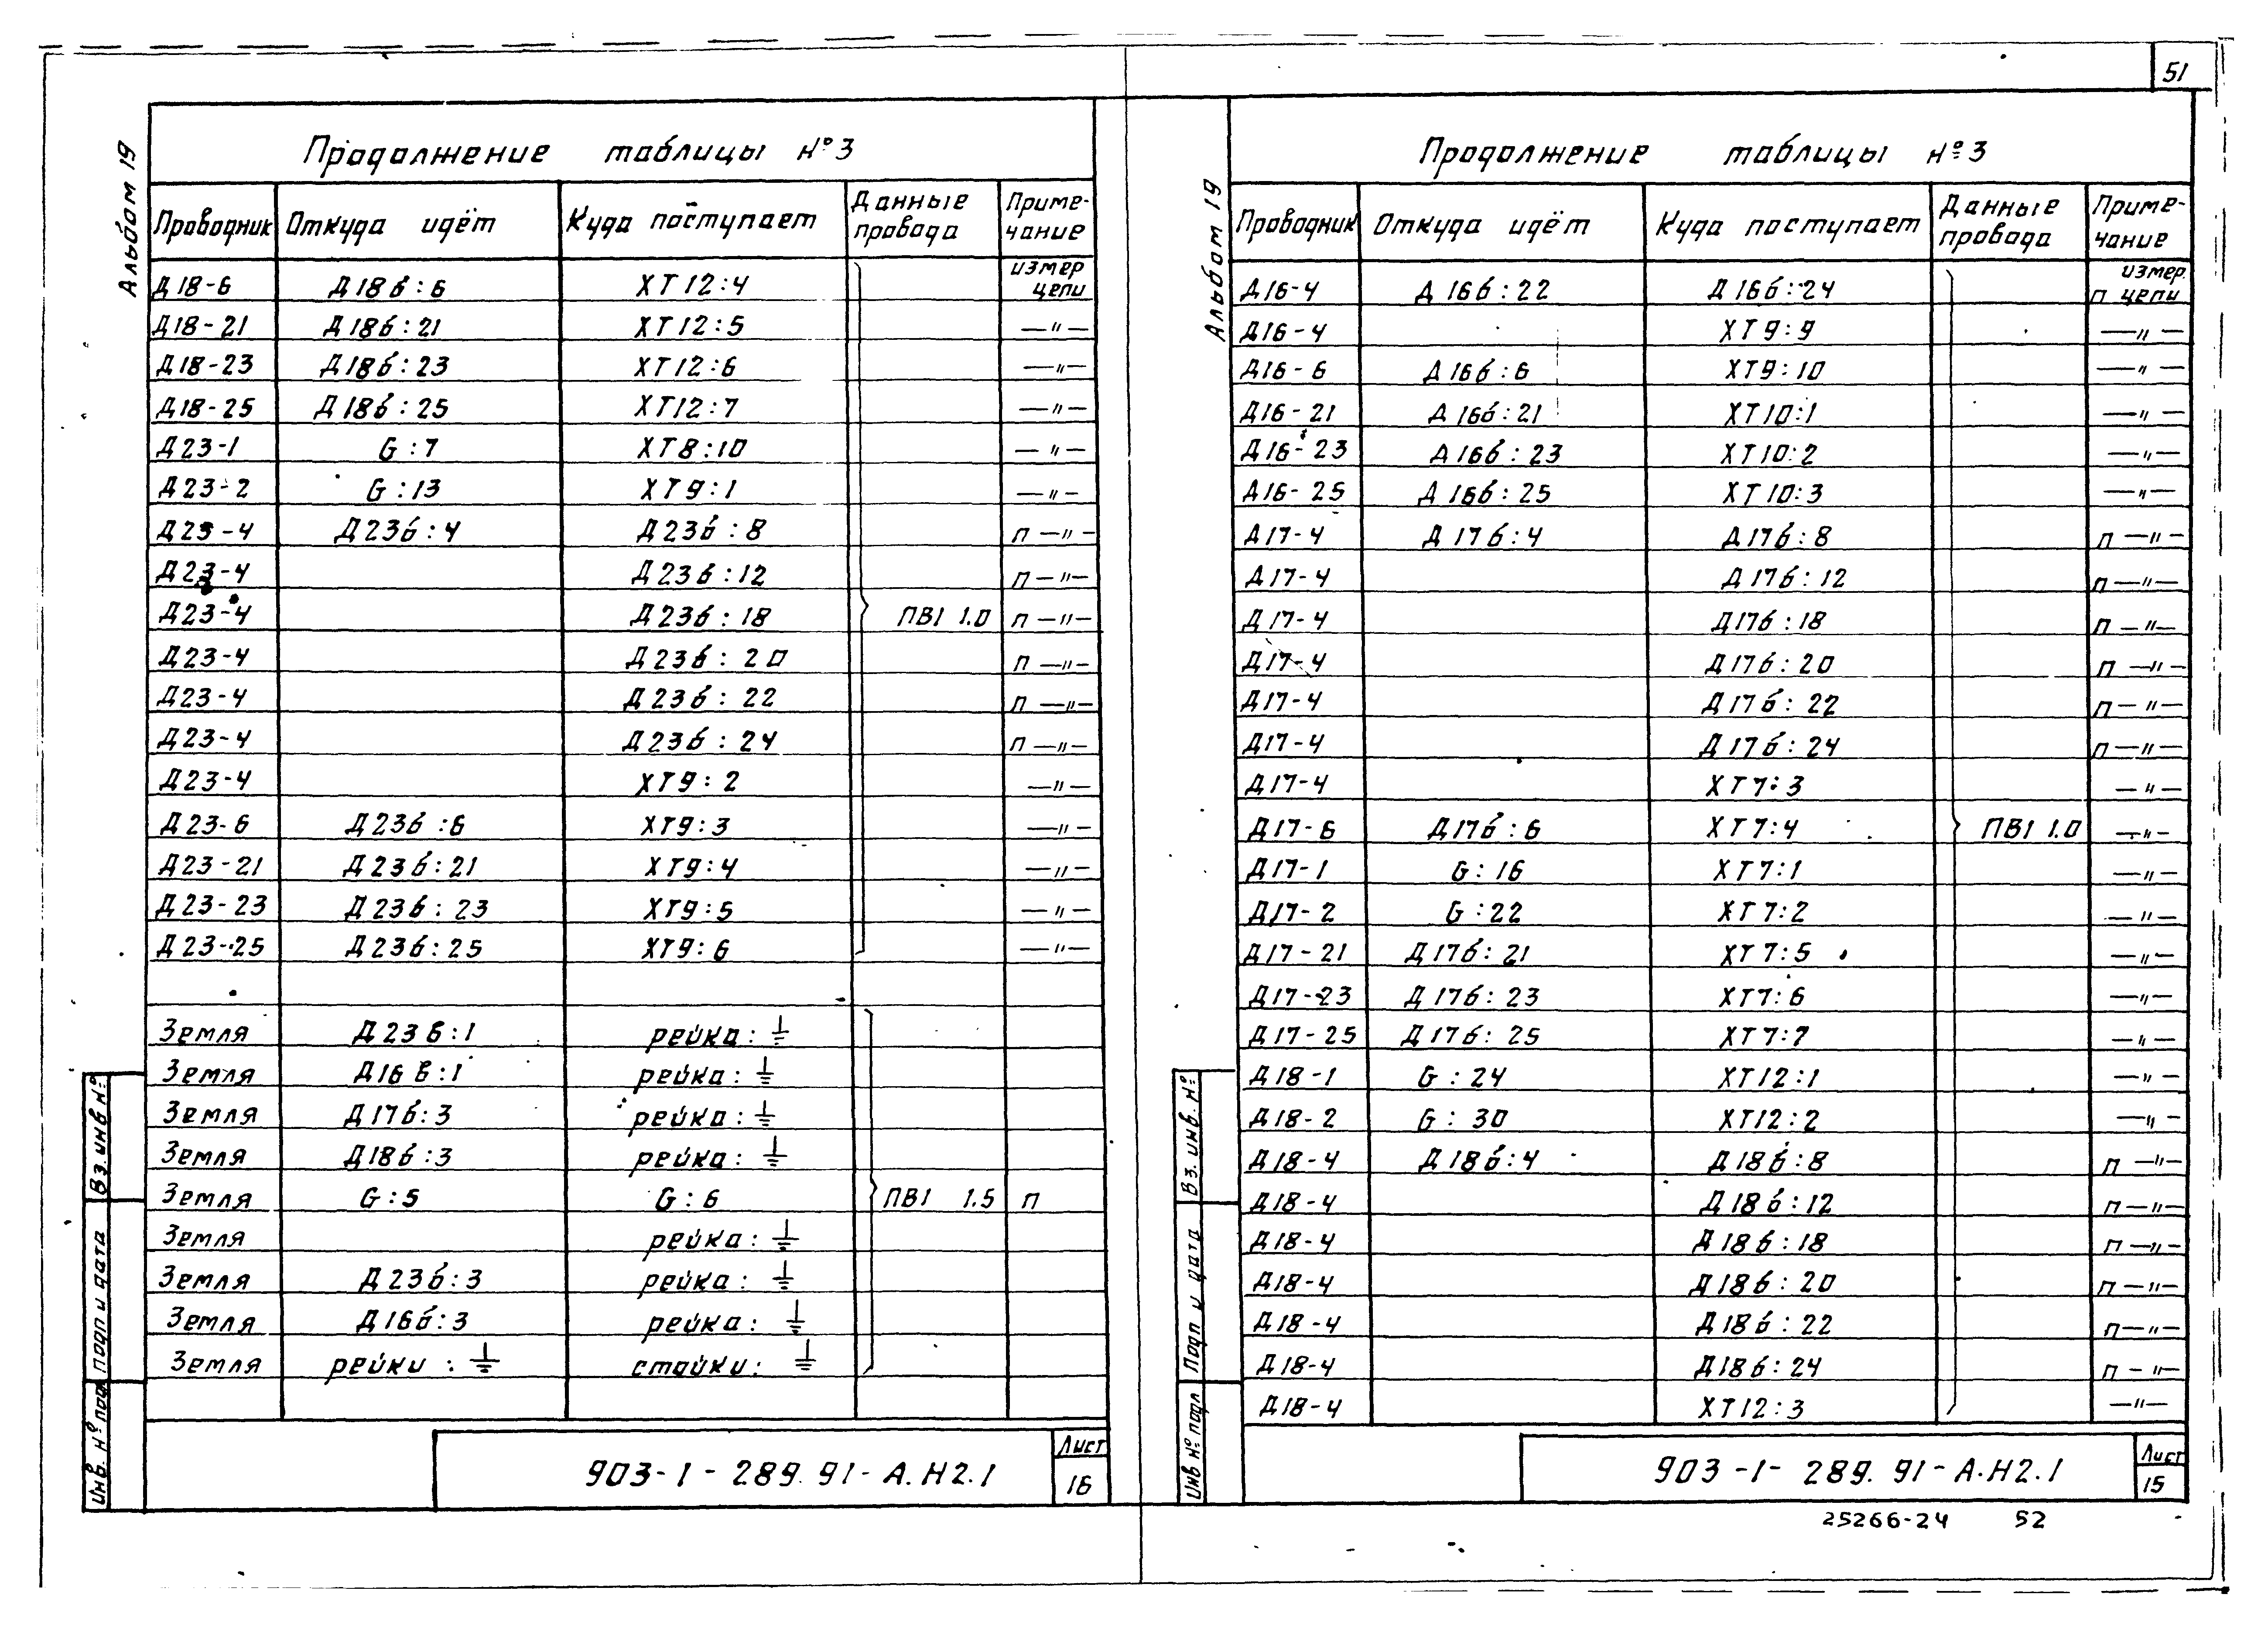 51
Альбом 19
Продолжение таблицы №3
Проводник Откуда идёт Куда поступает Данные провода Приме-чание
Д18-6 Д18б:6 ХТ12:4 измер цепи
Д18-21 Д18б:21 ХТ12:5 —〃—
Д18-23 Д18б:23 ХТ12:6 —〃—
Д18-25 Д18б:25 ХТ12:7 —〃—
Д23-1 G:7 ХТ8:10 —〃—
Д23-2 G:13 ХТ9:1 —〃—
Д23-4 Д23б:4 Д23б:8 п —〃—
Д23-4 Д23б:12 п —〃—
Д23-4 Д23б:18 ПВ1 1.0 п —〃—
Д23-4 Д23б:20 п —〃—
Д23-4 Д23б:22 п —〃—
Д23-4 Д23б:24 п —〃—
Д23-4 ХТ9:2 —〃—
Д23-6 Д23б:6 ХТ9:3 —〃—
Д23-21 Д23б:21 ХТ9:4 —〃—
Д23-23 Д23б:23 ХТ9:5 —〃—
Д23-25 Д23б:25 ХТ9:6 —〃—
Земля Д23в:1 рейка: ⏚
Земля Д16в:1 рейка: ⏚
Земля Д17б:3 рейка: ⏚
Земля Д18б:3 рейка: ⏚
Земля G:5 G:6 ПВ1 1.5 п
Земля рейка: ⏚
Земля Д23б:3 рейка: ⏚
Земля Д16б:3 рейка: ⏚
Земля рейки: ⏚ стойки: ⏚
Вз. инв №
Подп и дата
Инв. № подл
903-1-289.91-А.Н2.1
Лист
16
Альбом 19
Продолжение таблицы №3
Проводник Откуда идёт Куда поступает Данные провода Приме-чание
Д16-4 Д16б:22 Д16б:24 измер п цепи
Д16-4 ХТ9:9 —〃—
Д16-6 Д16б:6 ХТ9:10 —〃—
Д16-21 Д16б:21 ХТ10:1 —〃—
Д16-23 Д16б:23 ХТ10:2 —〃—
Д16-25 Д16б:25 ХТ10:3 —〃—
Д17-4 Д17б:4 Д17б:8 п —〃—
Д17-4 Д17б:12 п —〃—
Д17-4 Д17б:18 п —〃—
Д17-4 Д17б:20 п —〃—
Д17-4 Д17б:22 п —〃—
Д17-4 Д17б:24 п —〃—
Д17-4 ХТ7:3 —〃—
Д17-6 Д17б:6 ХТ7:4 ПВ1 1.0 —〃—
Д17-1 G:16 ХТ7:1 —〃—
Д17-2 G:22 ХТ7:2 —〃—
Д17-21 Д17б:21 ХТ7:5 —〃—
Д17-23 Д17б:23 ХТ7:6 —〃—
Д17-25 Д17б:25 ХТ7:7 —〃—
Д18-1 G:24 ХТ12:1 —〃—
Д18-2 G:30 ХТ12:2 —〃—
Д18-4 Д18б:4 Д18б:8 п —〃—
Д18-4 Д18б:12 п —〃—
Д18-4 Д18б:18 п —〃—
Д18-4 Д18б:20 п —〃—
Д18-4 Д18б:22 п —〃—
Д18-4 Д18б:24 п —〃—
Д18-4 ХТ12:3 —〃—
Вз. инв. №
Подп и дата
Инв № подл
903-1-289.91-А.Н2.1
Лист
15
25266-24 52